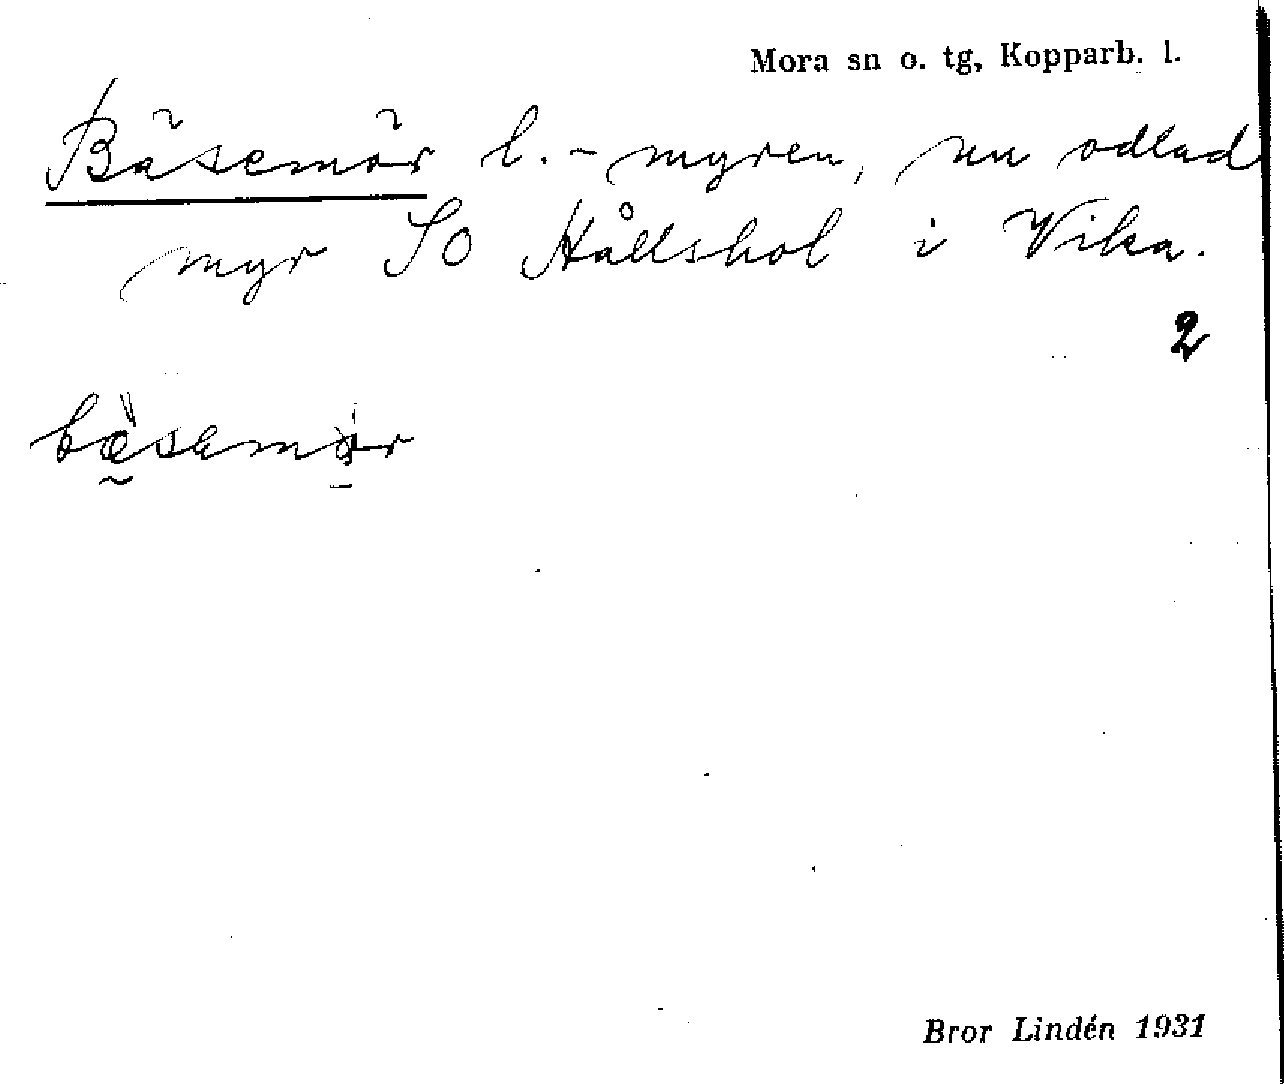 Mora sn o. tg, Kopparb. l.
Bäsemör l. -myren, nu odlad
myr SO Hållshol i Vika.
2
bäsemör
Bror Lindén 1931